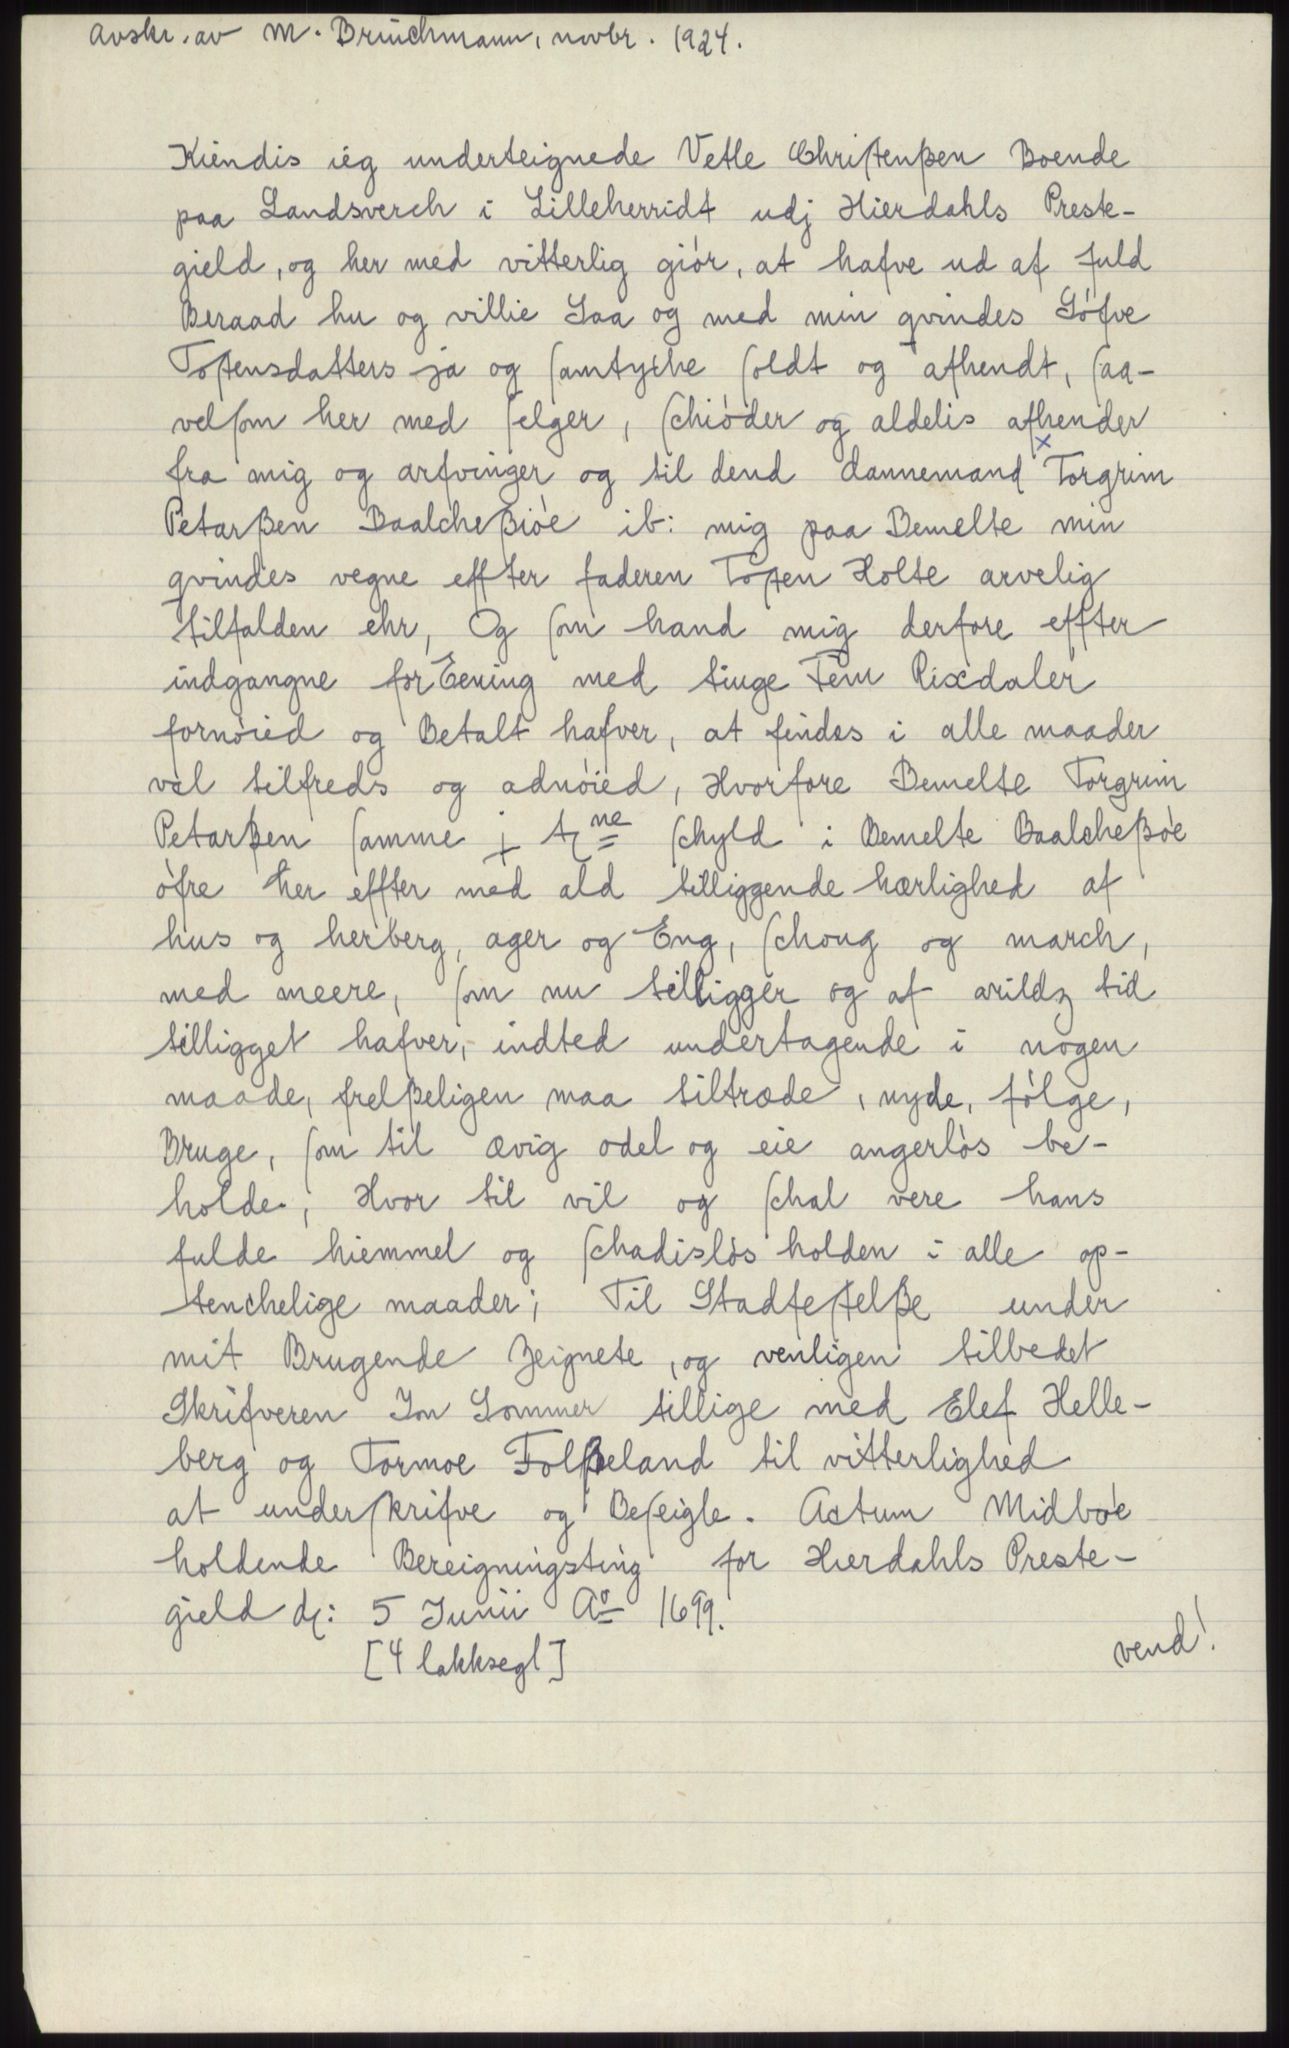 Avskr. av M. Brüchmann, novbr. 1924.
Kiendis ieg underteignede Vetle Chriſtenßen Boende
paa Landsverch i Lilleherridt udj Hierdahls Preste-
gield, og her med vitterlig giór, at hafve ud af fuld
Beraad hu og villie Saa og med min qvindes Gófve
Toſtensdatters ja og ſamtyche ſoldt og afhendt, ſaa-
velſom her med ſelger, ſchióder og aldelis afhender
fra mig og arfvinger og til dend dannemand x Torgrim
Petarßen Baalcheßióe ib: mig paa Bemelte min
qvindes vegne effter faderen Toſten Holte arvelig
tilfalden ehr, Og ſom hand mig derfore effter
indgangne forEening med tiuge Fem Rixdaler
fornóied og Betalt hafver, at findes i alle maader
vel tilfreds og adnóied, Hvorfore Bemelte Torgrim
Petarßen ſamme j tne ſchyld i Bemelte Baalcheßóe
ófre her effter med ald tilliggende hærlighed af
hus og herberg, ager og Eng, ſchoug og march,
med meere, ſom nu tilligger og af arildz tid
tilligget hafver, indted undertagende i nogen
maade, frelßeligen maa tiltræde, nyde, fólge,
Bruge, ſom til ævig odel og eie angerlós be-
holde, Hvor til vil og ſchal vere hans
fulde hiemmel og ſchadislós holden i alle op-
tenchelige maader; Til Stadfeſtelße under
mit Brugende Zeignete, og venligen tilbedet
Skrifveren Jon Sommer tillige med Elef Helle-
berg og Tormoe Folßeland til vitterlighed
at underſkrifve og Beſeigle. Actum Midbóe
holdende Bereigningsting for Hierdahls Preste-
gield d: 5 Junii Ao 1699.
[4 lakksegl]
vend!